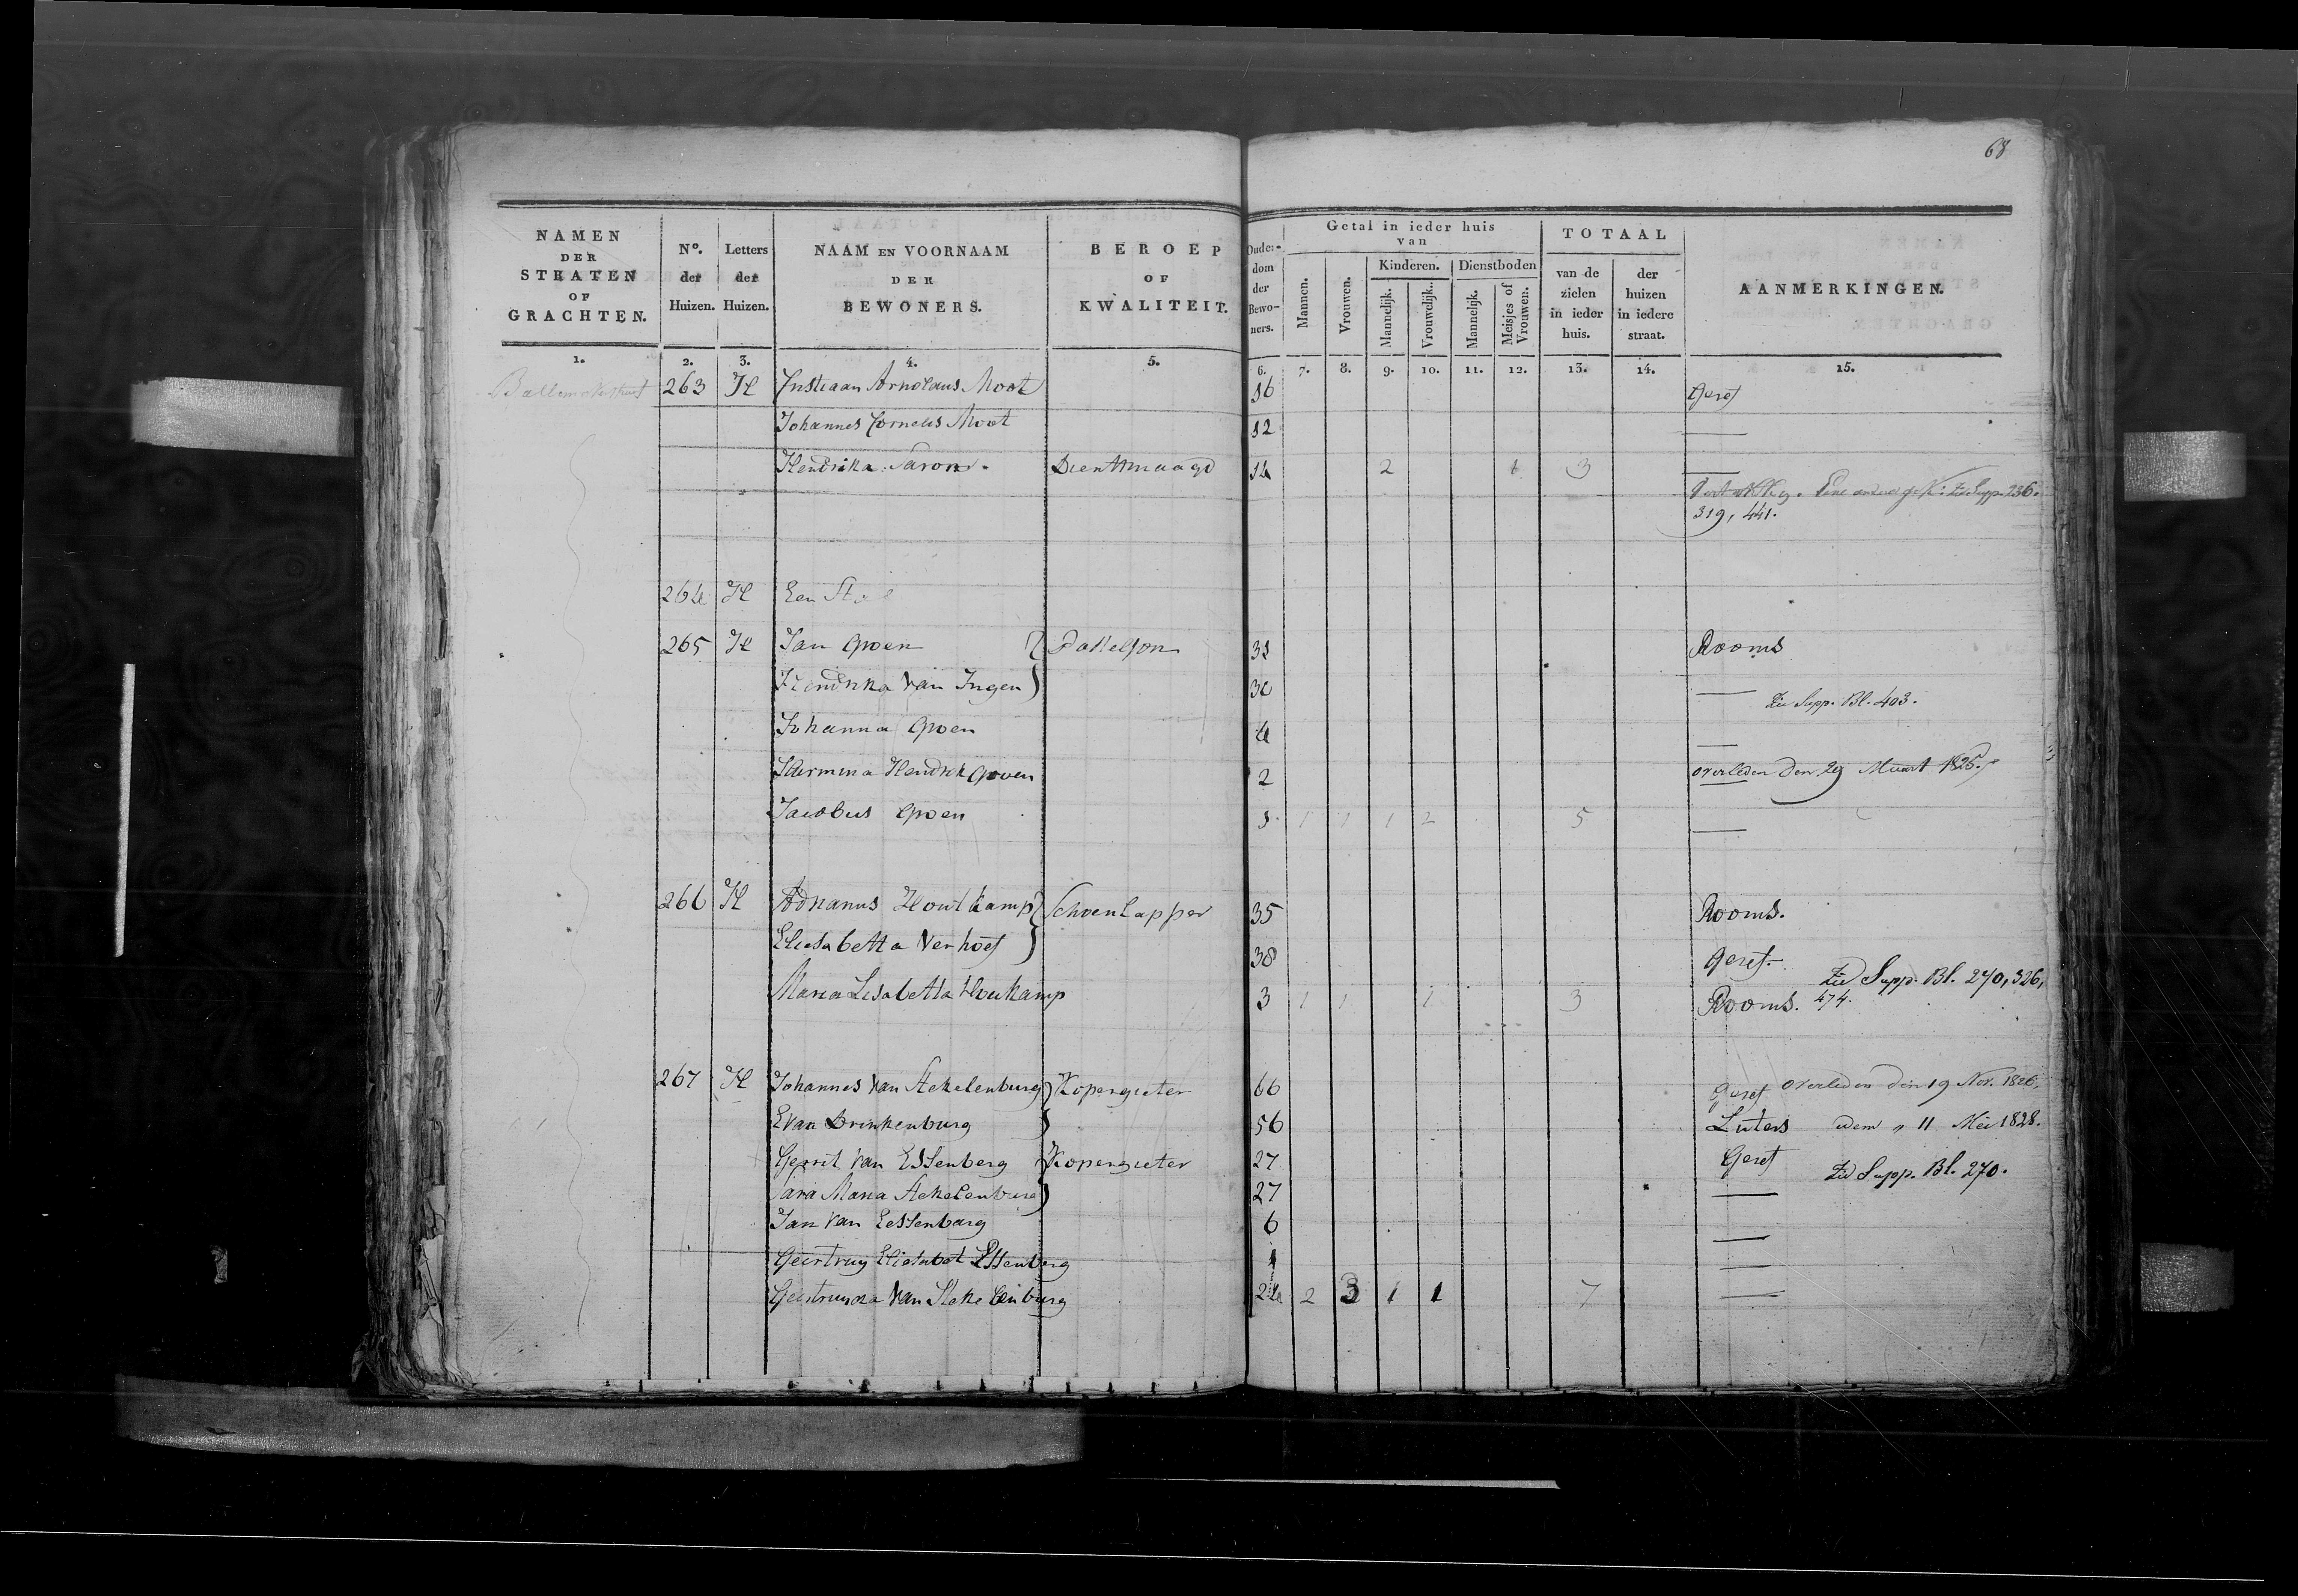 68
NAMEN DER STRATEN OF GRACHTEN.
Nº. der Huizen.
Letters der Huizen.
NAAM EN VOORNAAM DER BEWONERS.
BEROEP OF KWALITEIT.
Ouderdom der Bewoners.
Getal in ieder huis van
Mannen.
Vrouwen.
Kinderen.
Mannelijk.
Vrouwelijk.
Dienstboden
Mannelijk.
Meisjes of Vrouwen.
TOTAAL
van de zielen in ieder huis.
der huizen in iedere straat.
AANMERKINGEN.
1. 2. 3. 4. 5. 6. 7. 8. 9. 10. 11. 12. 13. 14. 15.
263 H Arnoldus Moot 16 Geref
Johannes Cornelis Moot 12
Hendrika Dienstmaagd 2 1 3
Supp. 236.
319, 441.
264 H Een
265 H Jan Groen 31 Rooms
Hendrika Van Ingen 30
Zie Supp. Bl. 403.
Johanna Groen 4
Harmina Hendrik Groen 2 overleden den 29 Maart 1826
Jacobus Groen 1 1 1 2 5
266 H Adrianus Houtkamp Schoenlapper 35 Rooms.
Eliesabetta Verhoef 38 Geref.
Zie Supp. Bl. 270, 326,
Maria Lisabetta Houkamp 3 1 1 1 3 Rooms. 474.
267 H Johannes Van Stekelenburg Kopergieter 66 Geref overleden den 19 Nov. 1826,
Eva Drinkenburg 56 Luters idem " 11 Mei 1828.
Gerrit Van Essenberg Kopergieter 27 Geref
Zie Supp. Bl. 270.
Sara Maria Stekelenburg 27
Jan Van Eessenbarg 6
Geertruy Eliesabet Essenberg 1
Geertruyda Van Stekelenburg 24 2 3 1 1 7